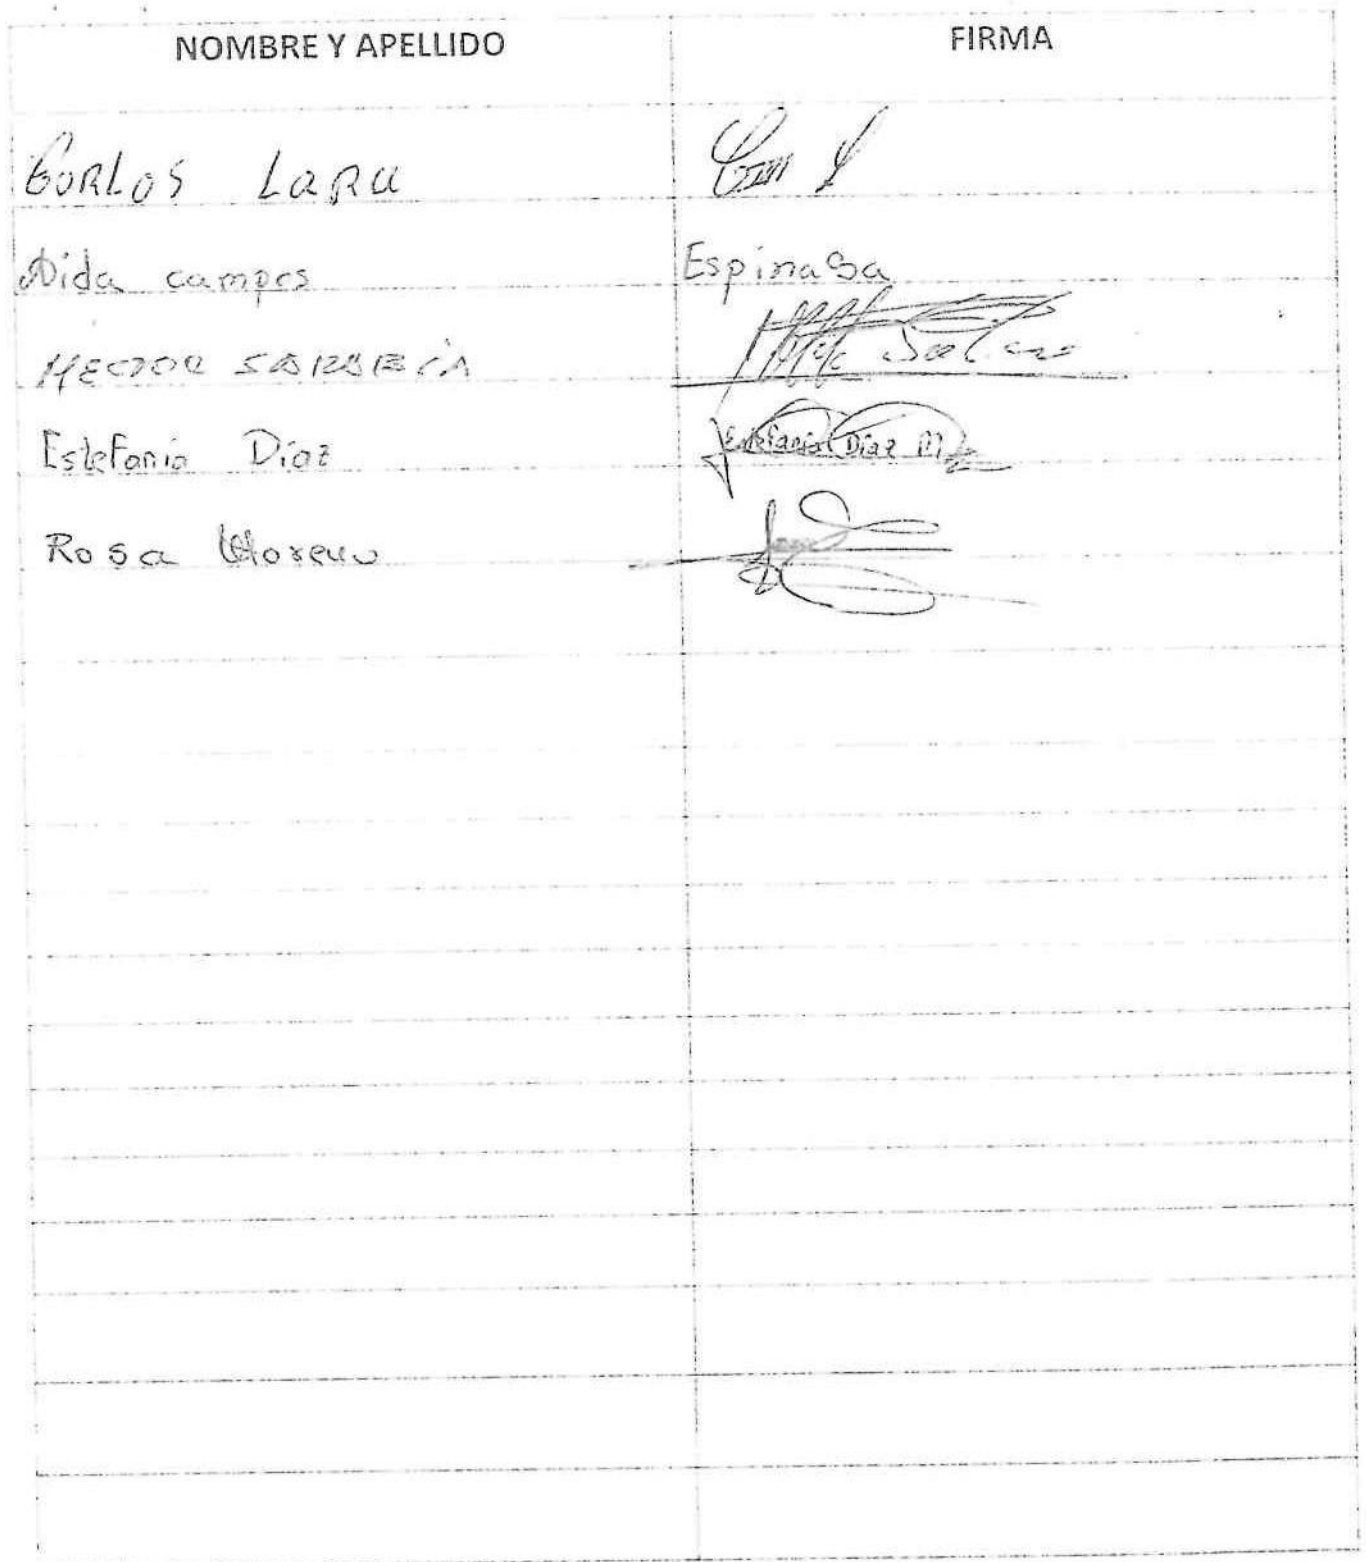 NOMBRE Y APELLIDO FIRMA
Carlos Lara
Aida campos Espinasa
HECTOR SARABIA
Estefania Díaz Estefania Díaz M
Rosa Moreno